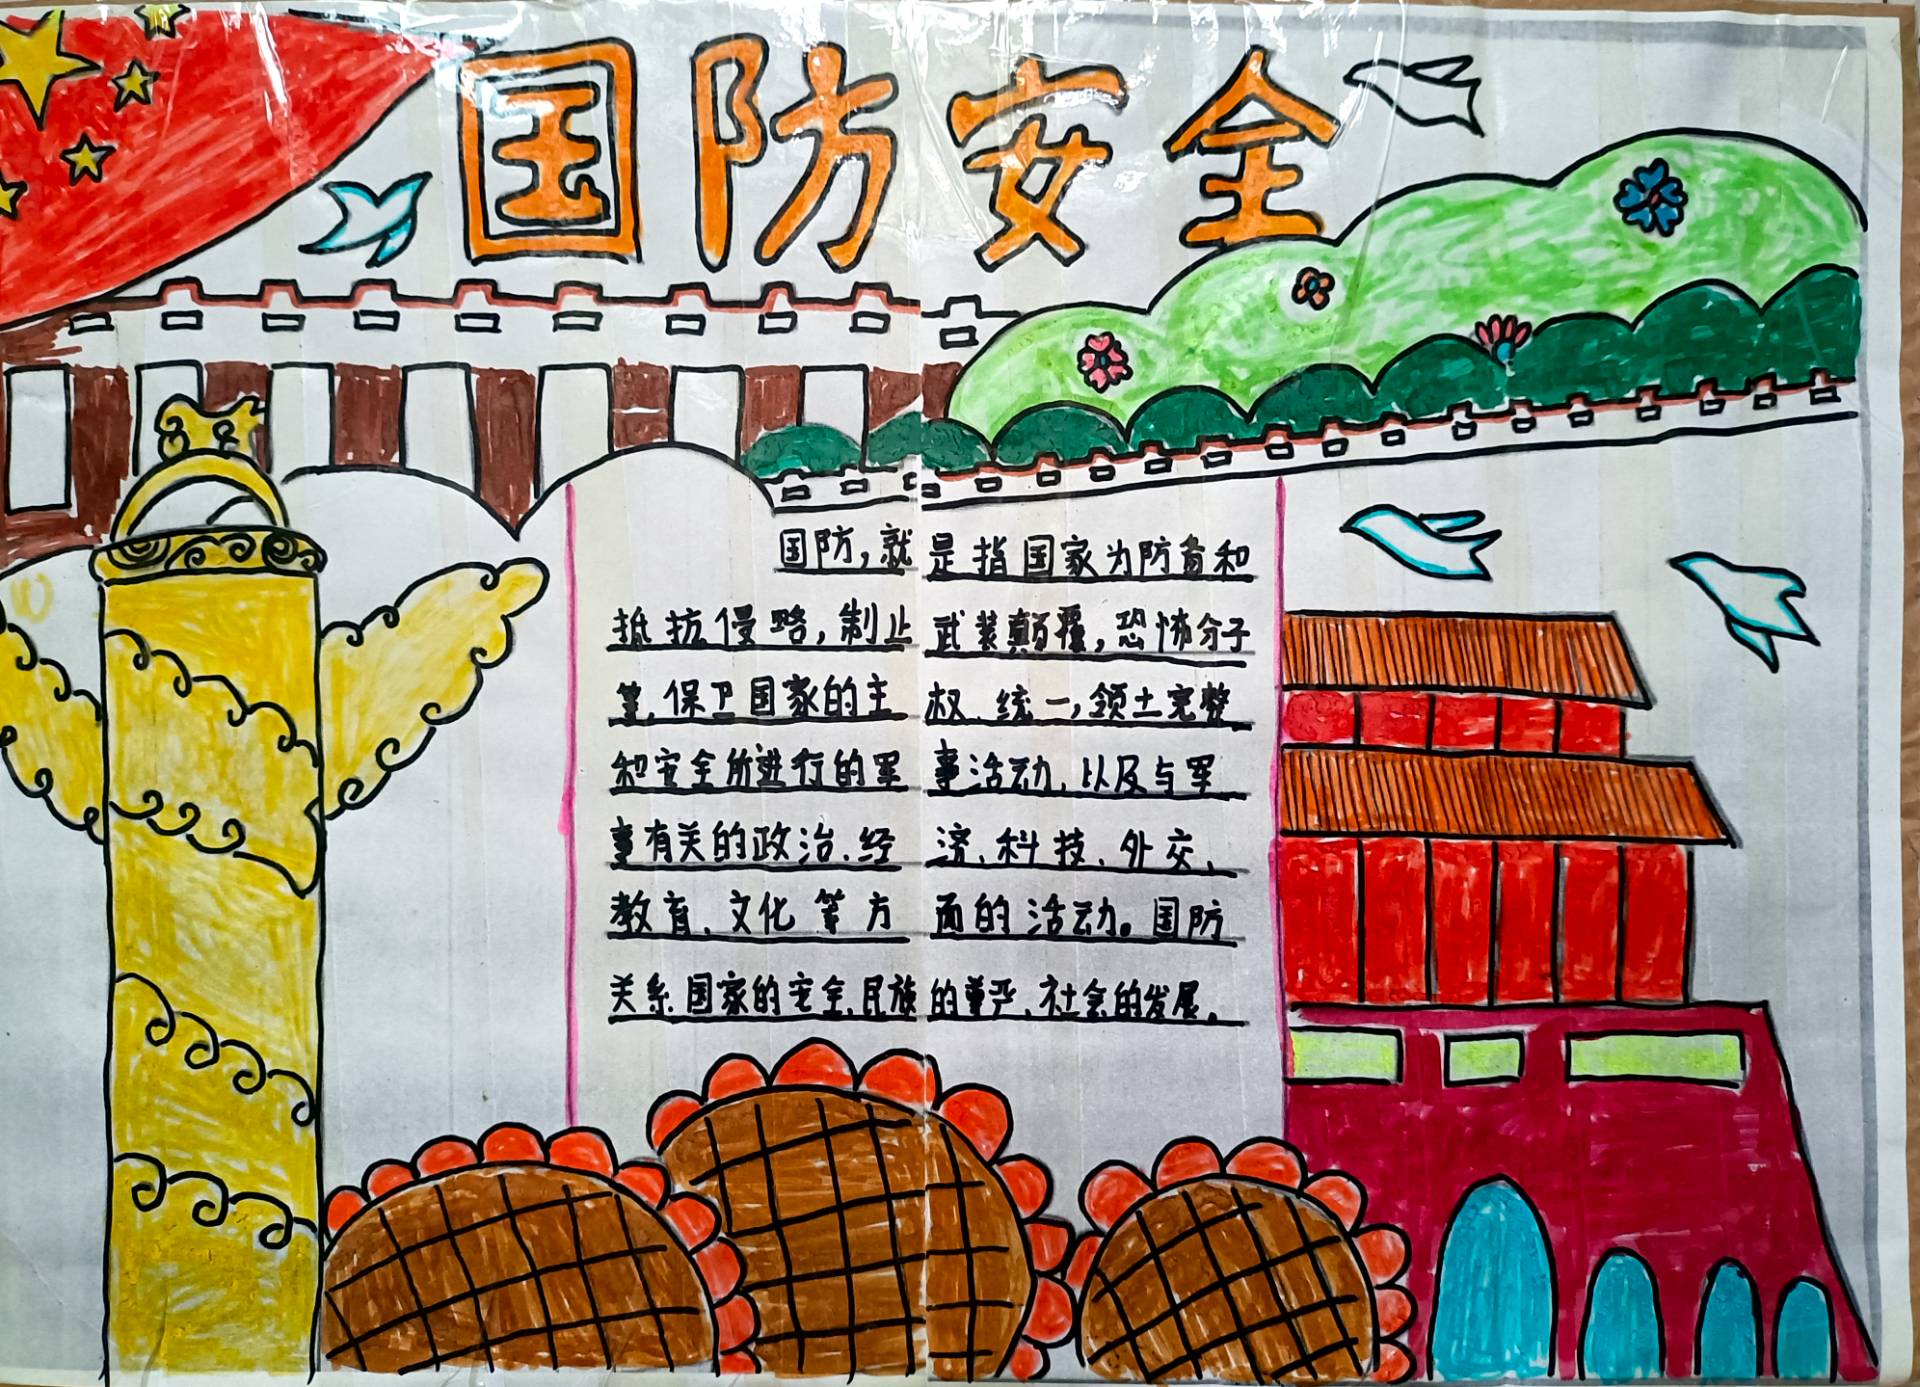 国防安全
国防，就是指国家为防备和
抵抗侵略，制止武装颠覆，恐怖分子
等、保卫国家的主权、统一，领土完整
和安全所进行的军事活动、以及与军
事有关的政治、经济、科技、外交、
教育、文化等方面的活动。国防
关系国家的安全、民族的尊严、社会的发展。